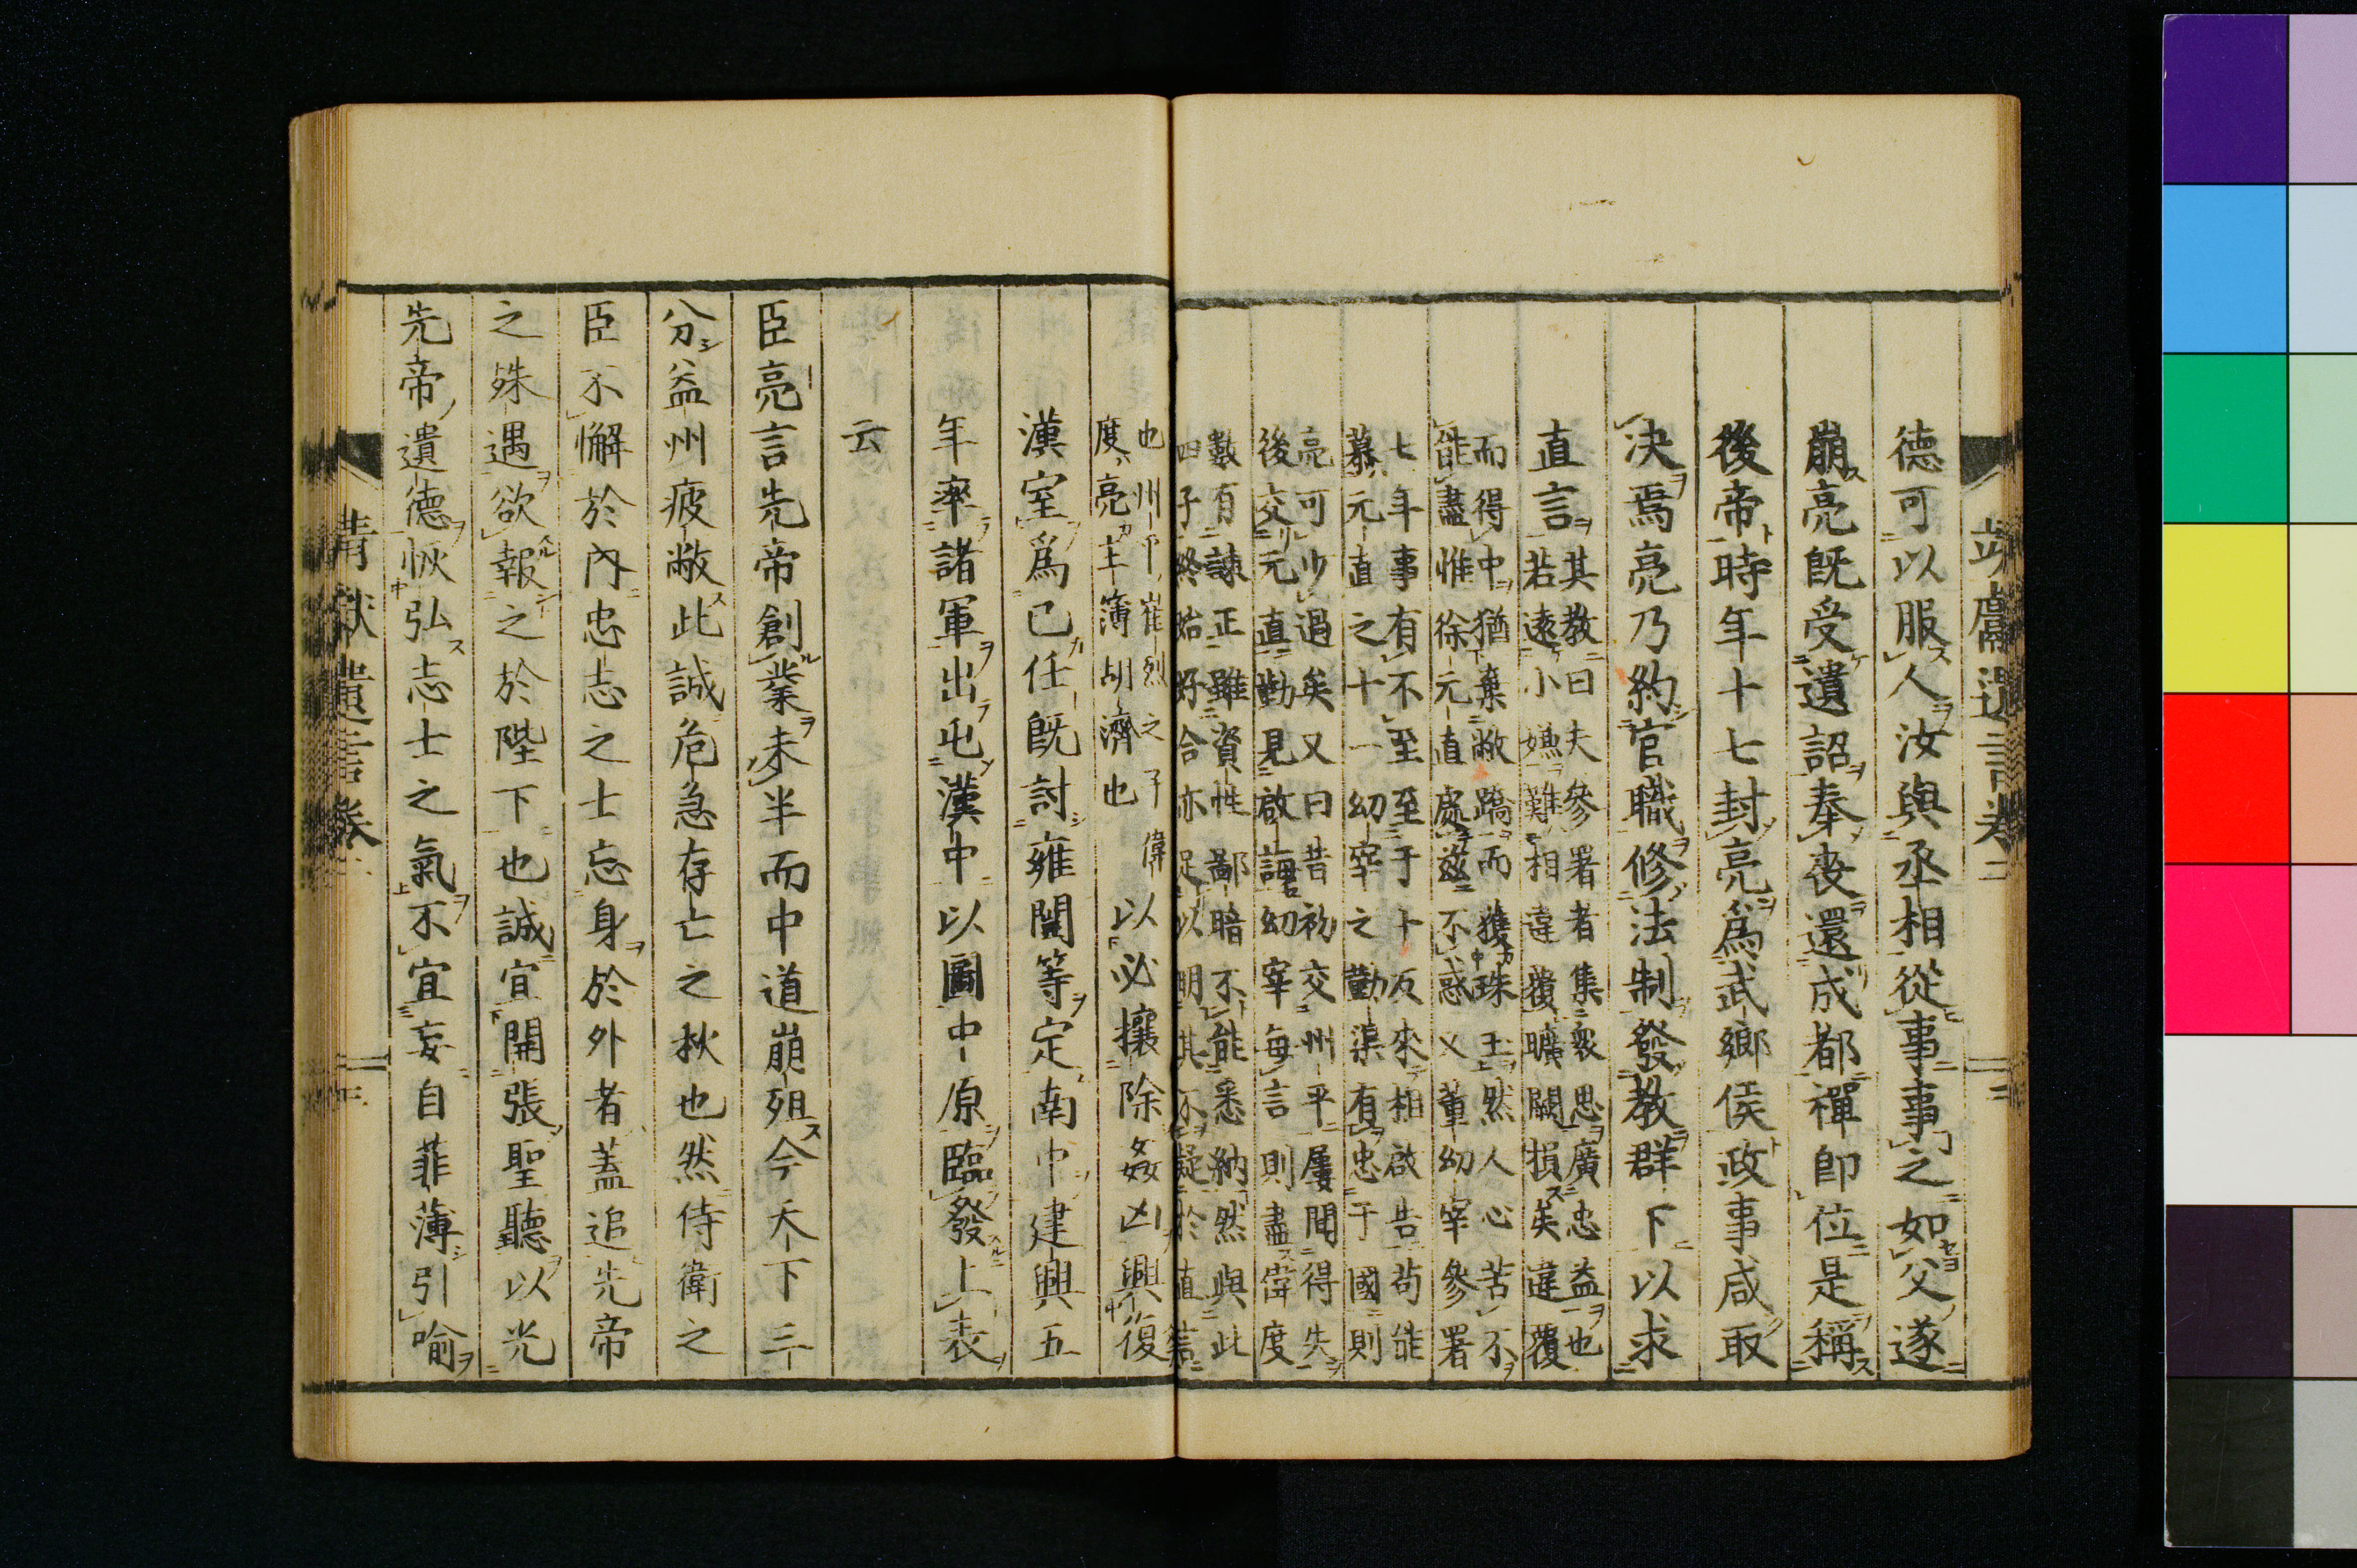 德可以服人汝與丞相從事事之如父遂
崩亮既受遺詔奉喪還成都禪卽位是稱
後帝時年十七封亮爲武鄉侯政事咸取
決焉亮乃約官職修法制發教群下以求
直言
其教曰夫參署者集衆思廣忠益也
若遠小嫌難相違覆曠闕損矣違覆
而得中猶棄敝蹻而獲珠玉然人心苦不
能盡惟徐元直處茲不惑又董幼宰參署
七年事有不至至于十反來相啟告苟能
慕元直之十一幼宰之勤渠有忠于國則
亮可少過矣又曰昔初交州平屢聞得失
後交元直勤見啟誨幼宰每言則盡偉度
數有諫正雖資性鄙暗不能悉納然與此
四子終始好合亦足以明其不疑於直言
也州平崔烈之子偉
度亮主簿胡濟也
以必攘除姦凶興復
漢室爲已任既討雍闓等定南中建興五
年率諸軍出屯漢中以圖中原臨發上表
云
臣亮言先帝創業未半而中道崩殂今天下三
分益州疲敝此誠危急存亡之秋也然侍衛之
臣不懈於內忠志之士忘身於外者蓋追先帝
之殊遇欲報之於陛下也誠宜開張聖聽以光
先帝遺德恢弘志士之氣不宜妄自菲薄引喻